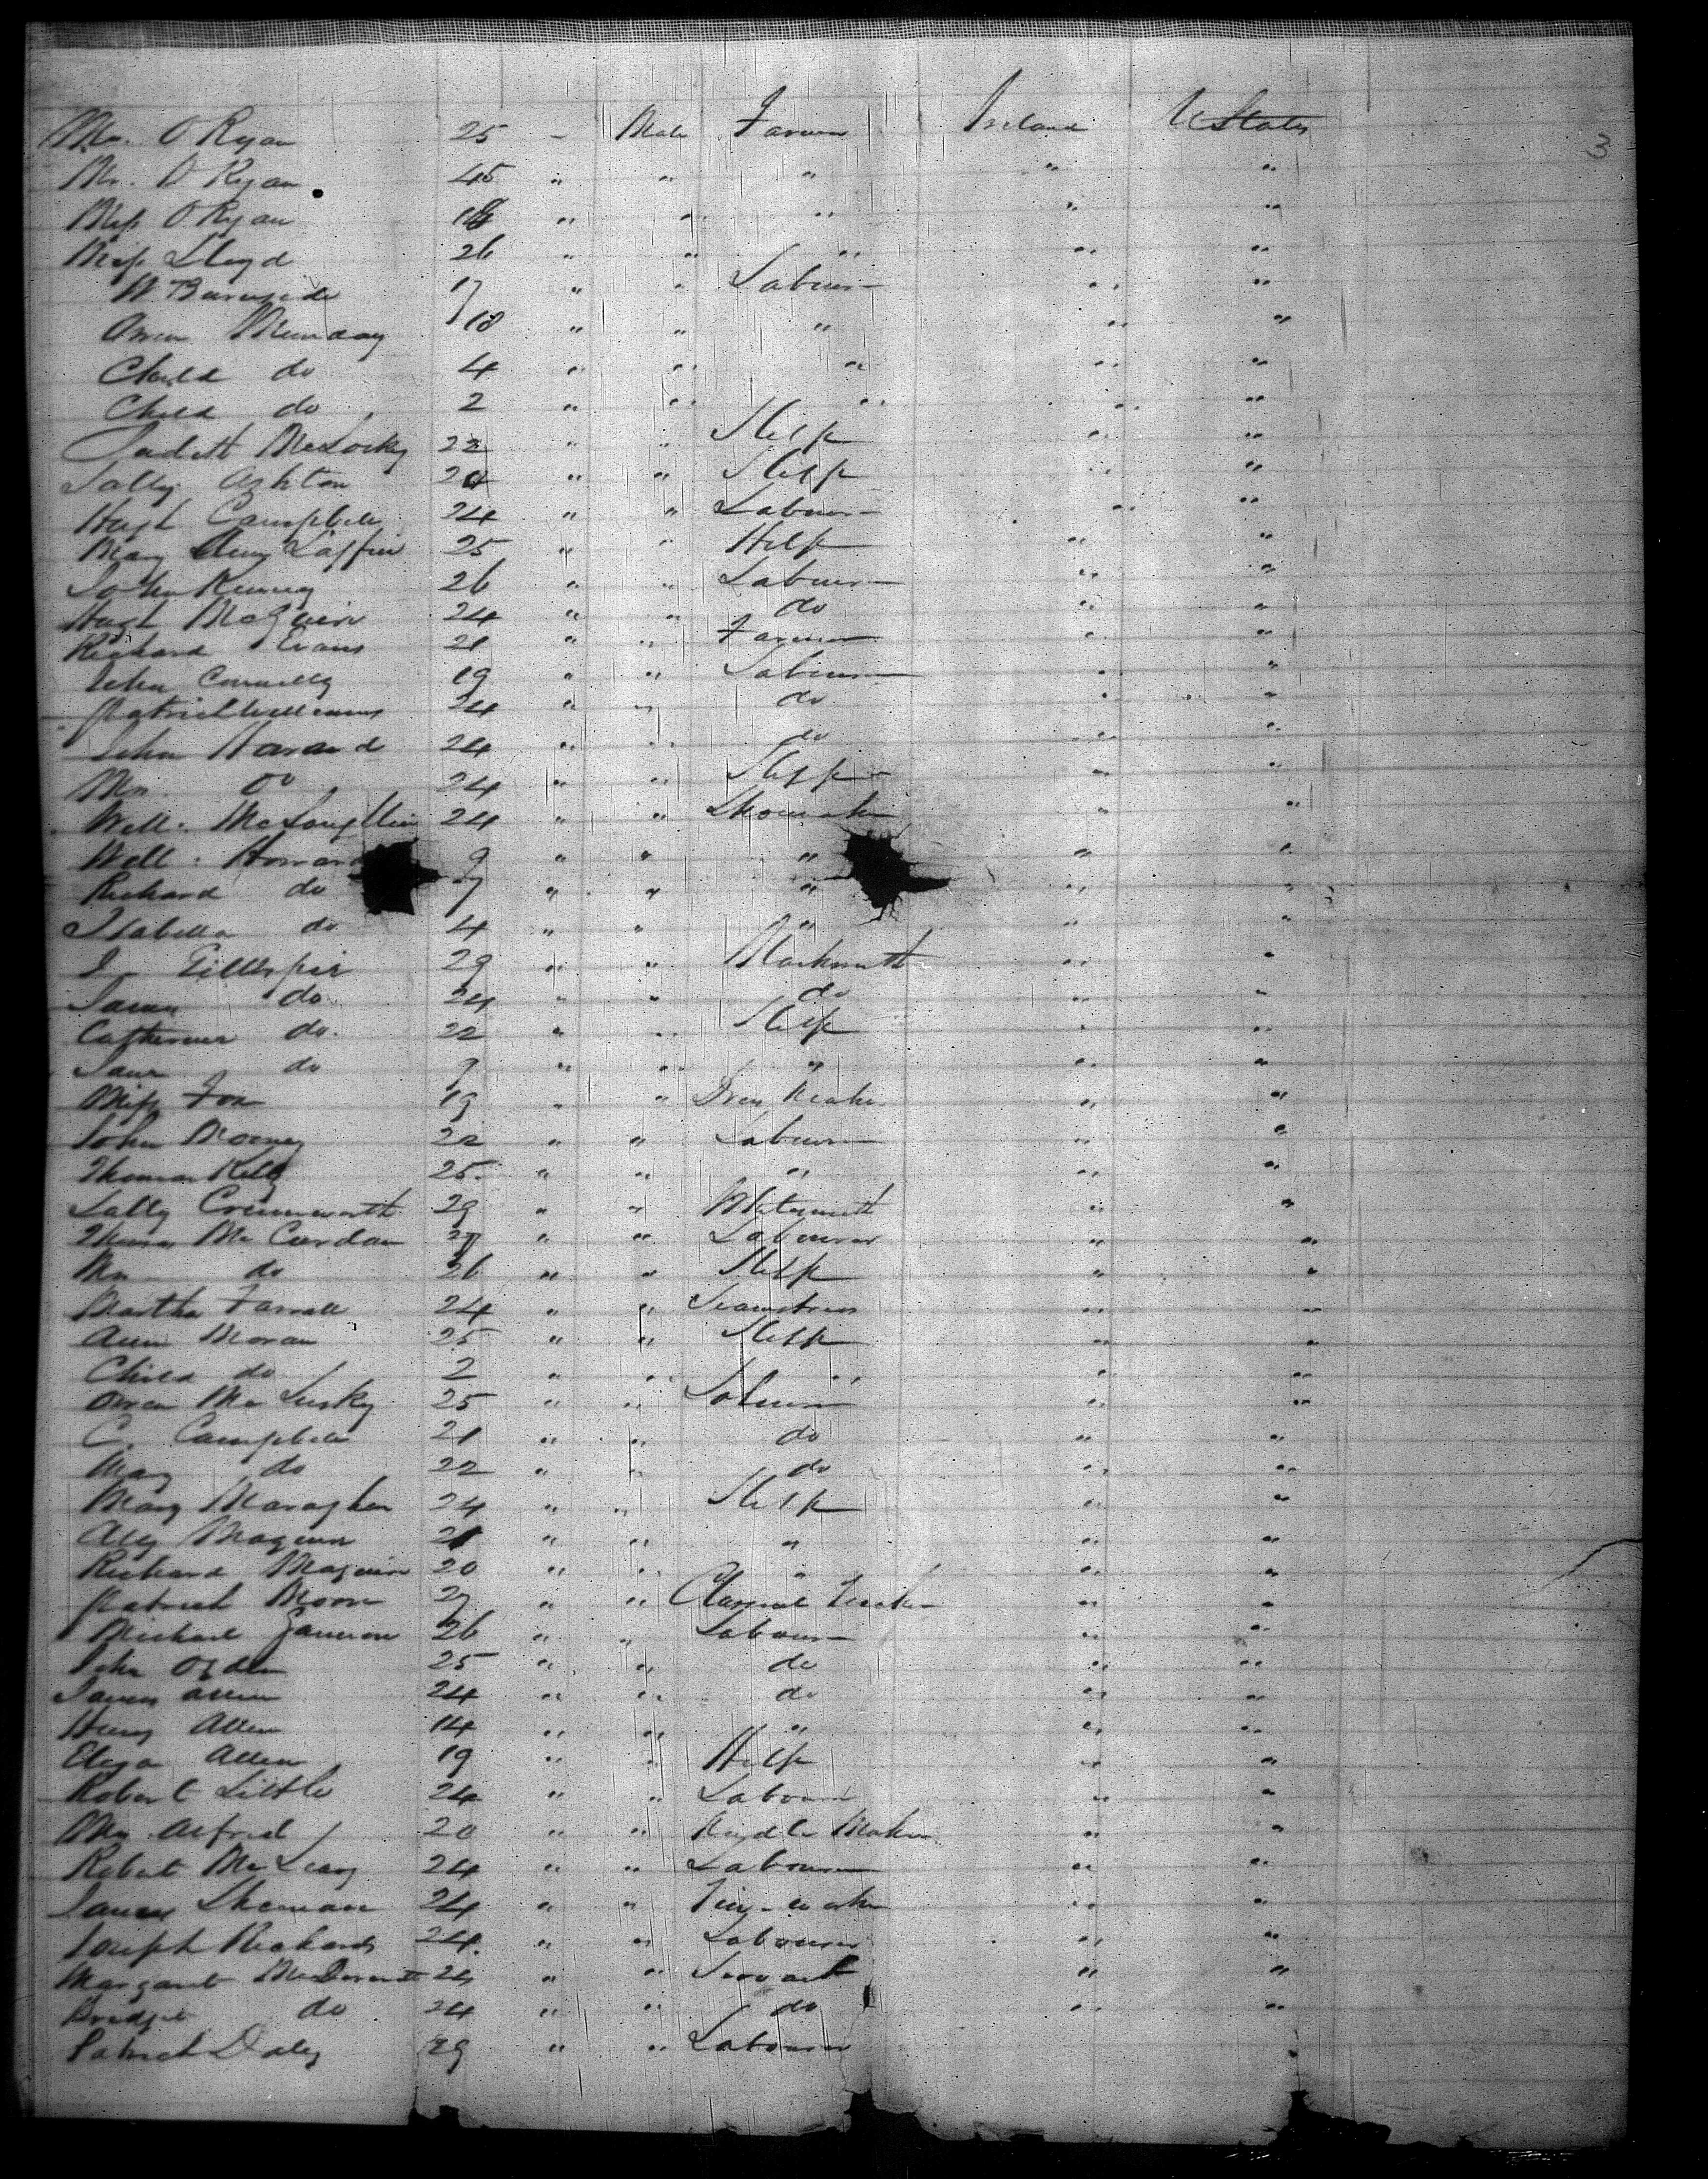 Mr. O Ryan 25 - Male Farmer Ireland U States
3
Mr. D Ryan 45 " " " " "
Miss O Ryan " " " " "
Miss Lloyd 26 " " " " "
W Burnside 17 " " Labourer " "
Owen Munday 18 " " " " "
Child do 4 " " " " "
Child do 2 " " " " "
Judith McLosky 22 " " Help " "
Sally Ashton " " Help " "
Hugh Campbell 24 " " Labourer " "
Mary Laffin 25 " " Help " "
John Kenney 26 " " Labourer " "
Hugh McGuire 24 " " do " "
Richard Evans 21 " " Farmer " "
John Connelly 19 " " Labourer " "
Patrick Williams 24 " " do " "
John Harand 24 " " do " "
Mrs. Do 24 " " Help " "
Will. McLoughlin 24 " " Shoemaker " "
Will. Howard 9 " " " " "
Richard do 7 " " " " "
Isabella do 4 " " " " "
J Gillespie 29 " " Blacksmith " "
James do 24 " " do " "
Catherine do. 22 " " Help " "
Jane do 9 " " " " "
Miss Fox 19 " " Dress Maker " "
John Mooney 22 " " Labourer " "
Thomas Kelly 25 " " " " "
Sally 29 " " Whitesmith " "
Thomas McCurdan " " Labourer " "
Mrs do 26 " " Help " "
Martha Farrell 24 " " Seamstress " "
Ann Moran 25 " " Help " "
Child do 2 " " " " "
Owen McLusky 25 " " Labourer " "
C. Campbell 21 " " do " "
Mary do 22 " " do " "
Mary Maraghan 24 " " Help " "
Ally Maguire 21 " " " " "
Richard Maguire 20 " " " " "
Patrick Moore 27 " " Classical Teacher " "
Michael 26 " " Labourer " "
John Ogden 25 " " do " "
James Allen 24 " " do " "
Henry Allen 14 " " " " "
Eliza Allen 19 " " Help " "
Robert Little 24 " " Labourer " "
Mrs. Alfred 20 " " Maker " "
Robert McLeary 24 " " Labourer " "
James Sheman 24 " " " "
Joseph Richards 24 " " Labourer " "
Margaret McDermott 24 " " Servant " "
Bridget do 24 " " do " "
Patrick Daley 29 " " Labourer